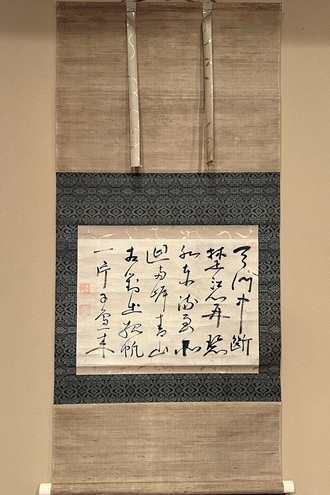 天門中斷
楚江開碧
水東流至此
迴兩岸青山
相對出孤帆
一片日邊來